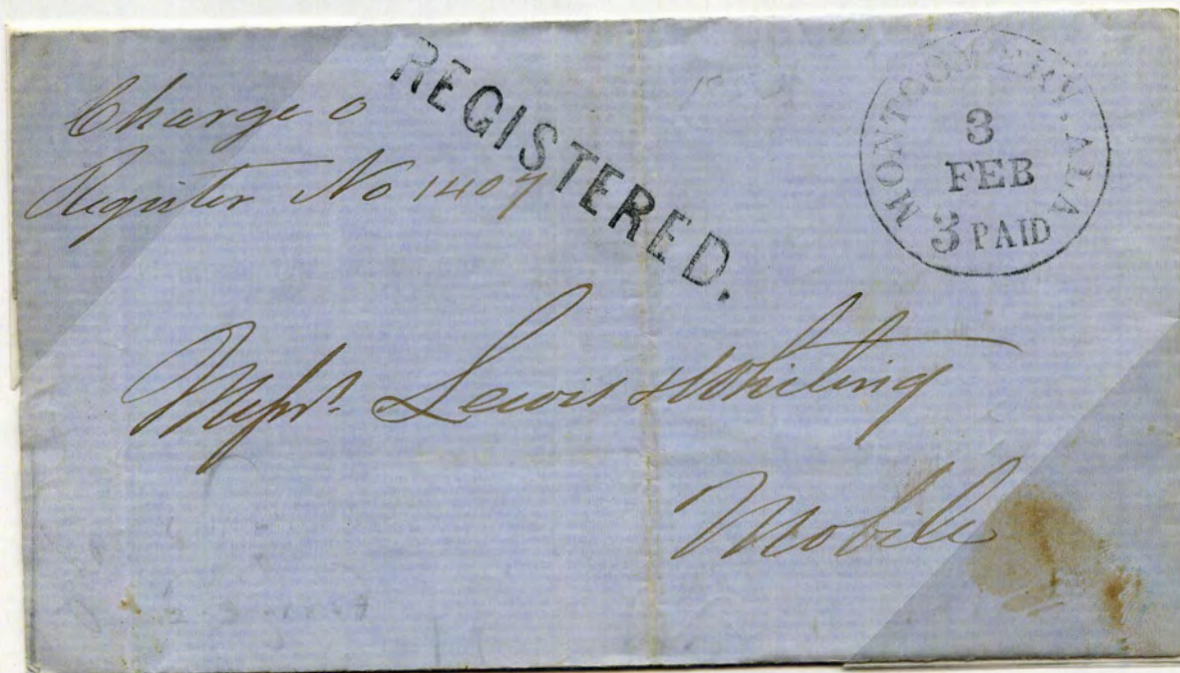 Charge o
Register No 1407
REGISTERED.
MONTGOMERY, ALA
3
FEB
3 PAID
Messrs. Lewis & Whiting
Mobile